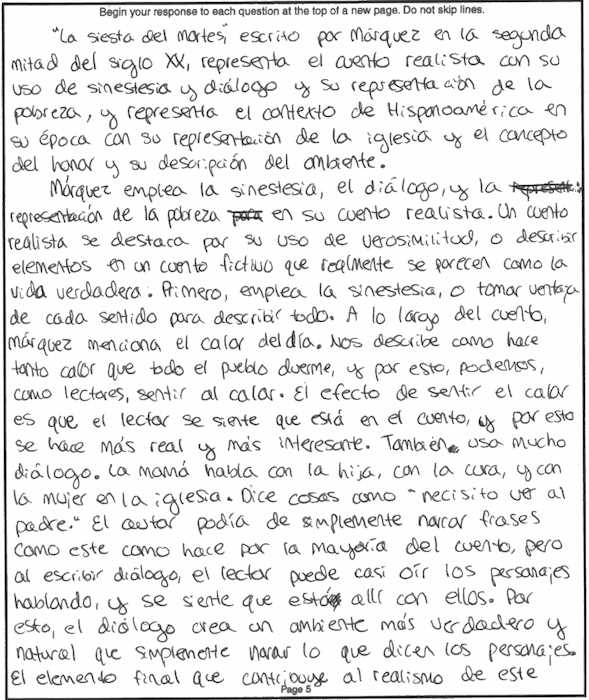 Begin your response to each question at the top of a new page. Do not skip lines.
"La siesta del martes," escrito por Márquez en la segunda
mitad del siglo XX, representa el cuento realista con su
uso de sinestesia y diálogo y su representación de la
pobreza, y representa el contexto de Hispanoamérica en
su época con su representación de la iglesia y el concepto
del honor y su descripción del ambiente.
Márquez emplea la sinestesia, el diálogo, y la
representación de la pobreza para en su cuento realista. Un cuento
realista se destaca por su uso de verosimilitud, o describir
elementos en un cuento fictivo que realmente se parecen como la
vida verdadera. Primero, emplea la sinestesia, o tomar ventaja
de cada sentido para describir todo. A lo largo del cuento,
Márquez menciona el calor del día. Nos describe como hace
tanto calor que todo el pueblo duerme, y por esto, podemos,
como lectores, sentir al calor. El efecto de sentir el calor
es que el lector se siente que está en el cuento, y por esto
se hace más real y más interesante. También usa mucho
diálogo. La mamá habla con la hija, con la cura, y con
la mujer en la iglesia. Dice cosas como "necisito ver al
padre." El autor podía de simplemente narrar frases
como este como hace por la mayoría del cuento, pero
al escribir diálogo, el lector puede casi oír los personajes
hablando, y se siente que está allí con ellos. Por
esto, el diálogo crea un ambiente más verdadero y
natural que simplemente narar lo que dicen los personajes.
El elemento final que contribuye al realismo de este
Page 5